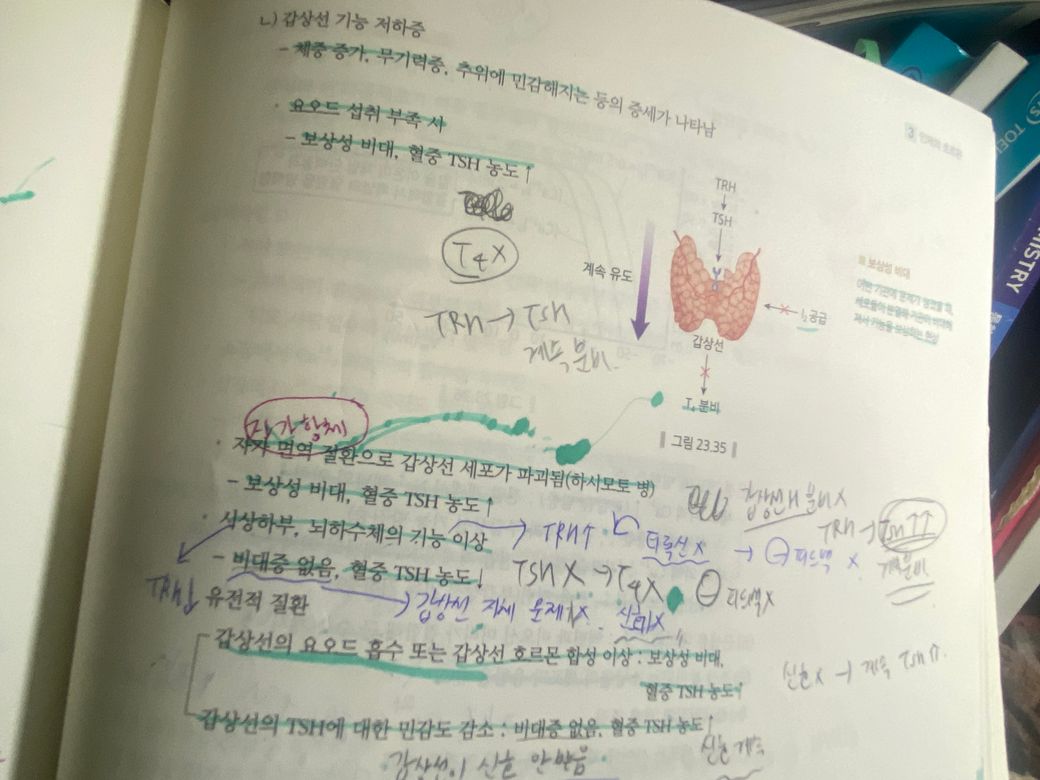 ㄴ) 갑상선 기능 저하증
- 체중 증가, 무기력증, 추위에 민감해지는 등의 증세가 나타남
· 요오드 섭취 부족 시
- 보상성 비대, 혈중 TSH 농도↑
T4 X
TRH → TSH
계속 분비
3
TRH
↓
TSH
계속 유도
I₂공급
갑상선
T₄ 분비
그림 23.35
■ 보상성 비대
자가항체
· 자가 면역 질환으로 갑상선 세포가 파괴됨(하시모토 병)
- 보상성 비대, 혈중 TSH 농도↑
갑상선H 분비X
TRH → TSH↑↑
계속분비
· 시상하부, 뇌하수체의 기능 이상
TRH↑
티록신X → ⊖피드백 X
- 비대증 없음, 혈중 TSH 농도↓
TSH X → T4X
⊖피드백X
TRH↓
유전적 질환
갑상선 자체 문제X
신호X
갑상선의 요오드 흡수 또는 갑상선 호르몬 합성 이상 : 보상성 비대,
혈중 TSH 농도↑
신호X → 계속 TSH↑
갑상선의 TSH에 대한 민감도 감소 : 비대증 없음, 혈중 TSH 농도↑
갑상선이 신호 안받음
신호 계속
TOEI
MISTRY